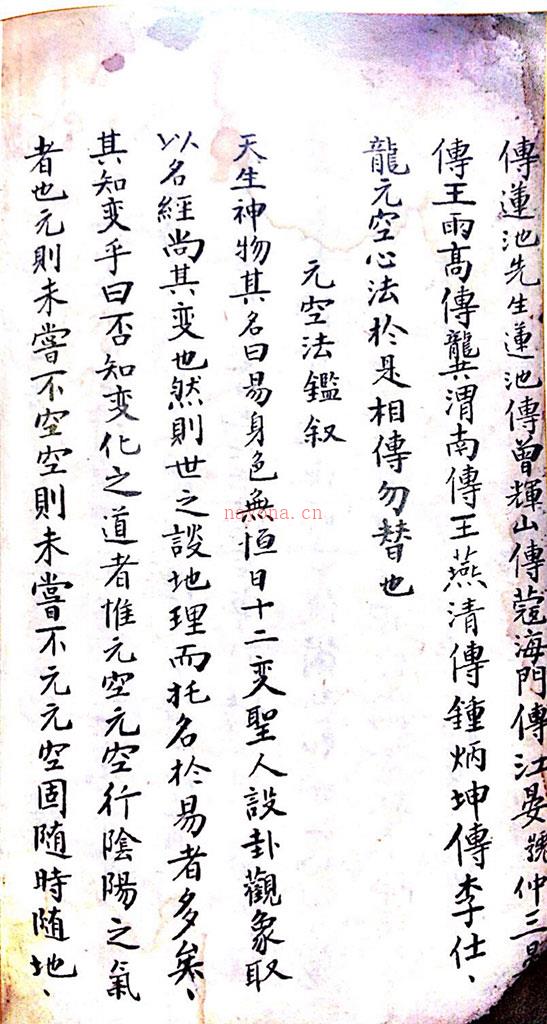 傳蓮池先生蓮池傳曾輝山傳蔻海門傳江晏號仲三
傳王雨高傳龔渭南傳王燕清傳鍾炳坤傳李仕、
龍元空心法於是相傳勿替也
元空法鑑叙
天生神物其名曰易身色無恒日十二变聖人設卦觀象取
以名經尚其变也然則世之談地理而托名於易者多矣、
其知变乎曰否知变化之道者惟元空元空行陰陽之氣
者也元則未嘗不空空則未嘗不元元空固随時随地、
nayona.cn